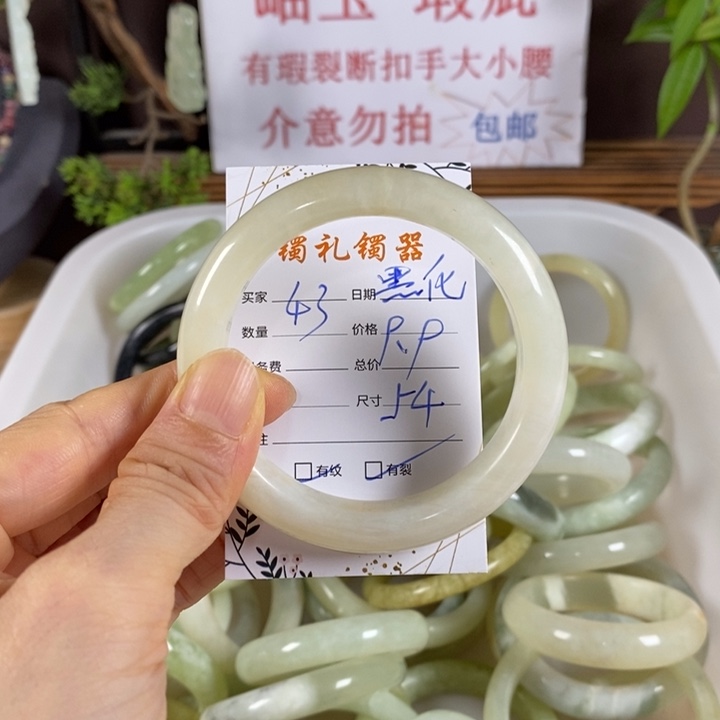 岫玉 瑕疵
有瑕裂断扣手大小腰
介意勿拍 包邮
镯礼镯器
买家 43 日期 黑化
数量 价格 P.P
务费 总价
尺寸 54
注
有纹 有裂